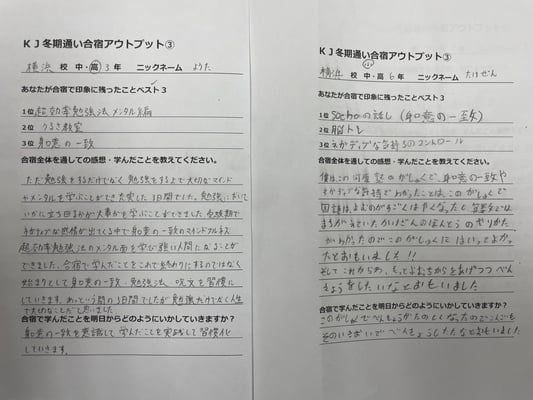 KJ冬期通い合宿アウトプット③
横浜 校 中・高 3年 ニックネーム ようた
あなたが合宿で印象に残ったことベスト3
1位 超効率勉強法メンタル編
2位 うるさ教室
3位 和意の一致
合宿全体を通しての感想・学んだことを教えてください。
ただ勉強をするだけでなく勉強をする上で大切なマインド
やメンタルを学ぶことができ充実した3日間でした。勉強において
いかに立ち回るかが大事かを学ぶことができました。受験期で
ネガティブな感情が出てくる中で和意の一致のマインドフルネス
超効率勉強法のメンタル面を学び強い人間になることが
できました。合宿で学んだことをこれで終わりにするのではなく
始まりとして和意の一致、勉強法、呪文を習慣に
していきます。あっという間の3日間でしたが勉強だけでなく人生
で大切なことだと思いました。
合宿で学んだことを明日からどのようにいかしていきますか？
和意の一致を意識して学んだことを実践して習慣化
していきます。
KJ冬期通い合宿アウトプット③
横浜 校 中・高 6年 ニックネーム たけぜん
あなたが合宿で印象に残ったことベスト3
1位 の話し(和意の一致)
2位 脳トレ
3位 ネガティブな気持ちのコントロール
合宿全体を通しての感想・学んだことを教えてください。
僕はこの冬期 のがしゅくで、和意の一致や
ネガティブな気持でわかったことはこのがしゅくで
国語は、よむのがすごくはやくなったと
まちがえていた かいけんのほんとうのやりかた
がわかったのでこのがしゅくにはいってよかっ
たとおもいました!!
そしてこれからわ、もっとよむちからをあげつつべん
きょうをしたいなとおもいました
合宿で学んだことを明日からどのようにいかしていきますか？
このがしゅくでべんきょうがたのしくなったのでこんごも
そのいきおいでべんきょうしたなとおもいました